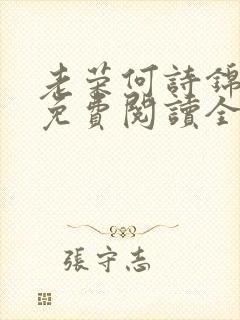 老荣何詩錦
免費閱讀全
張守志